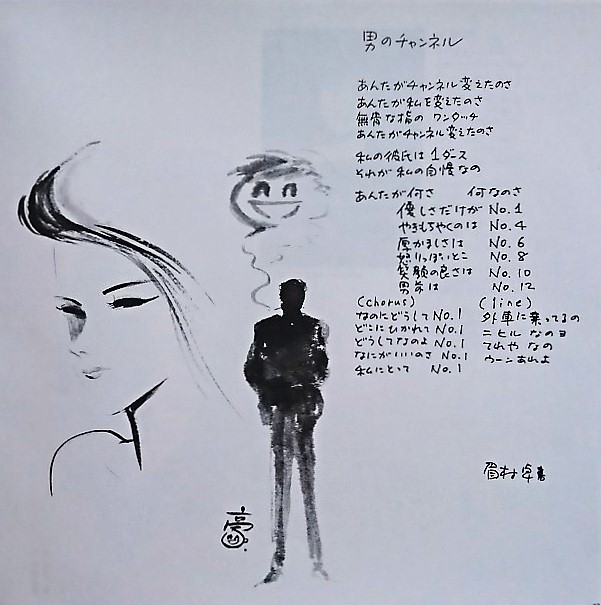 男のチャンネル
あんたがチャンネル変えたのさ
あんたが私を変えたのさ
無骨な指の ワンタッチ
あんたがチャンネル変えたのさ
私の彼氏は 1ダース
それが 私の自慢なの
あんたが何さ 何なのさ
優しさだけが No.1
やきもちやくのは No.4
厚かましさは No.6
怒りっぽいとこ No.8
笑顔の良さは No.10
男前は No.12
(chorus) (line)
なのにどうして No.1 外車に乗ってるの
どこにひかれて No.1 ニヒル なのヨ
どうしてなのよ No.1 てれや なの
なにがいいのさ No.1 ウーンあれよ
私にとって No.1
眉村卓